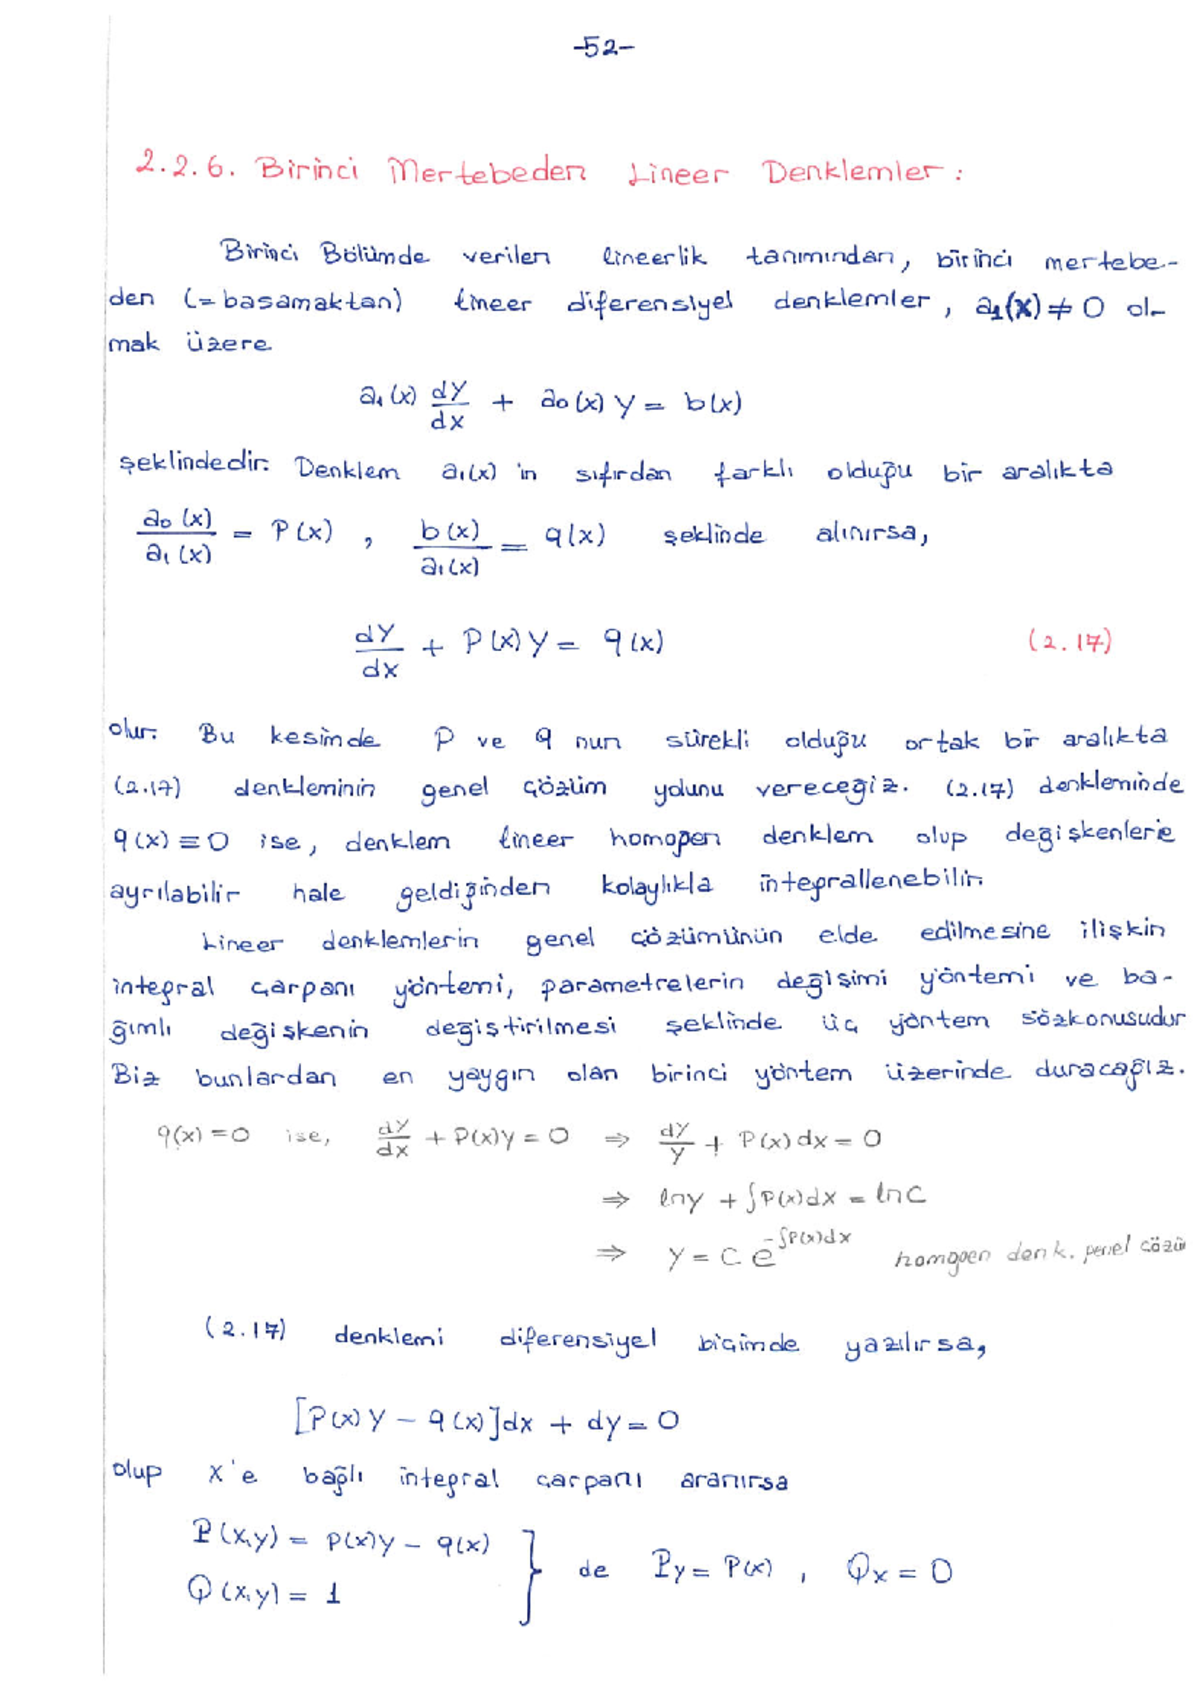 -52-
2.2.6. Birinci Mertebeden Lineer Denklemler:
Birinci Bölümde verilen lineerlik tanımından, birinci mertebe-
den (=basamaktan) lineer diferensiyel denklemler, a₁(x) ≠ 0 ol-
mak üzere
a₁(x) dy/dx + a₀(x) y = b(x)
şeklindedir. Denklem a₁(x) 'in sıfırdan farklı olduğu bir aralıkta
a₀(x)/a₁(x) = P(x) , b(x)/a₁(x) = q(x) şeklinde alınırsa,
dy/dx + P(x) y = q(x) (2.17)
olur. Bu kesimde P ve q nun sürekli olduğu ortak bir aralıkta
(2.17) denkleminin genel çözüm yolunu vereceğiz. (2.17) denkleminde
q(x) ≡ 0 ise, denklem lineer homogen denklem olup değişkenlerie
ayrılabilir hale geldiğinden kolaylıkla integrallenebilir.
Lineer denklemlerin genel çözümünün elde edilmesine ilişkin
integral çarpanı yöntemi, parametrelerin değişimi yöntemi ve ba-
ğımlı değişkenin değiştirilmesi şeklinde üç yöntem sözkonusudur
Biz bunlardan en yaygın olan birinci yöntem üzerinde duracağız.
q(x) = 0 ise, dy/dx + P(x)y = 0 ⇒ dy/y + P(x)dx = 0
⇒ lny + ∫P(x)dx = lnC
⇒ y = C e^(-∫P(x)dx) homgoen denk. genel çözü
(2.17) denklemi diferensiyel biçimde yazılırsa,
[P(x) y - q(x)]dx + dy = 0
olup x'e bağlı integral çarpanı aranırsa
P(x,y) = P(x)y - q(x)
Q(x,y) = 1 } de Py = P(x) , Qx = 0